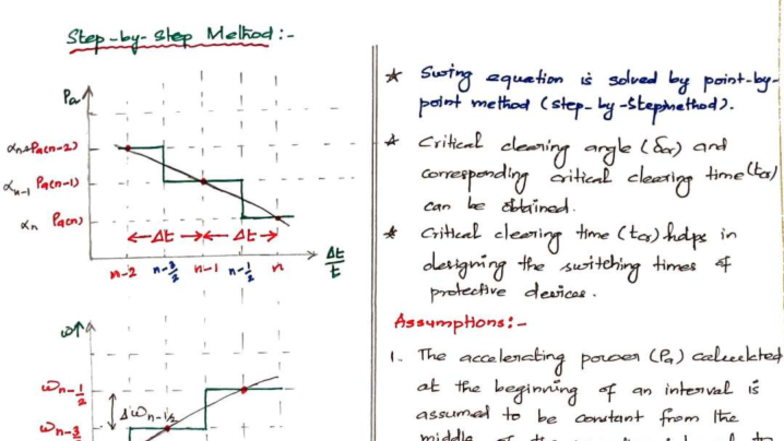 Step-by-step Method:-
Pa
αn-2 Pa(n-2)
αn-1 Pa(n-1)
αn Pa(n)
Δt Δt
n-2 n-3/2 n-1 n-1/2 n
Δt/t
ω
ωn-1/2
Δωn-1/2
ωn-3/2
* Swing equation is solved by point-by-
point method (step-by-step method).
* Critical clearing angle (δcr) and
corresponding critical clearing time (tcr)
can be obtained.
* Critical clearing time (tcr) helps in
designing the switching times of
protective devices.
Assumptions:-
1. The accelerating power (Pa) calculated
at the beginning of an interval is
assumed to be constant from the
middle of the